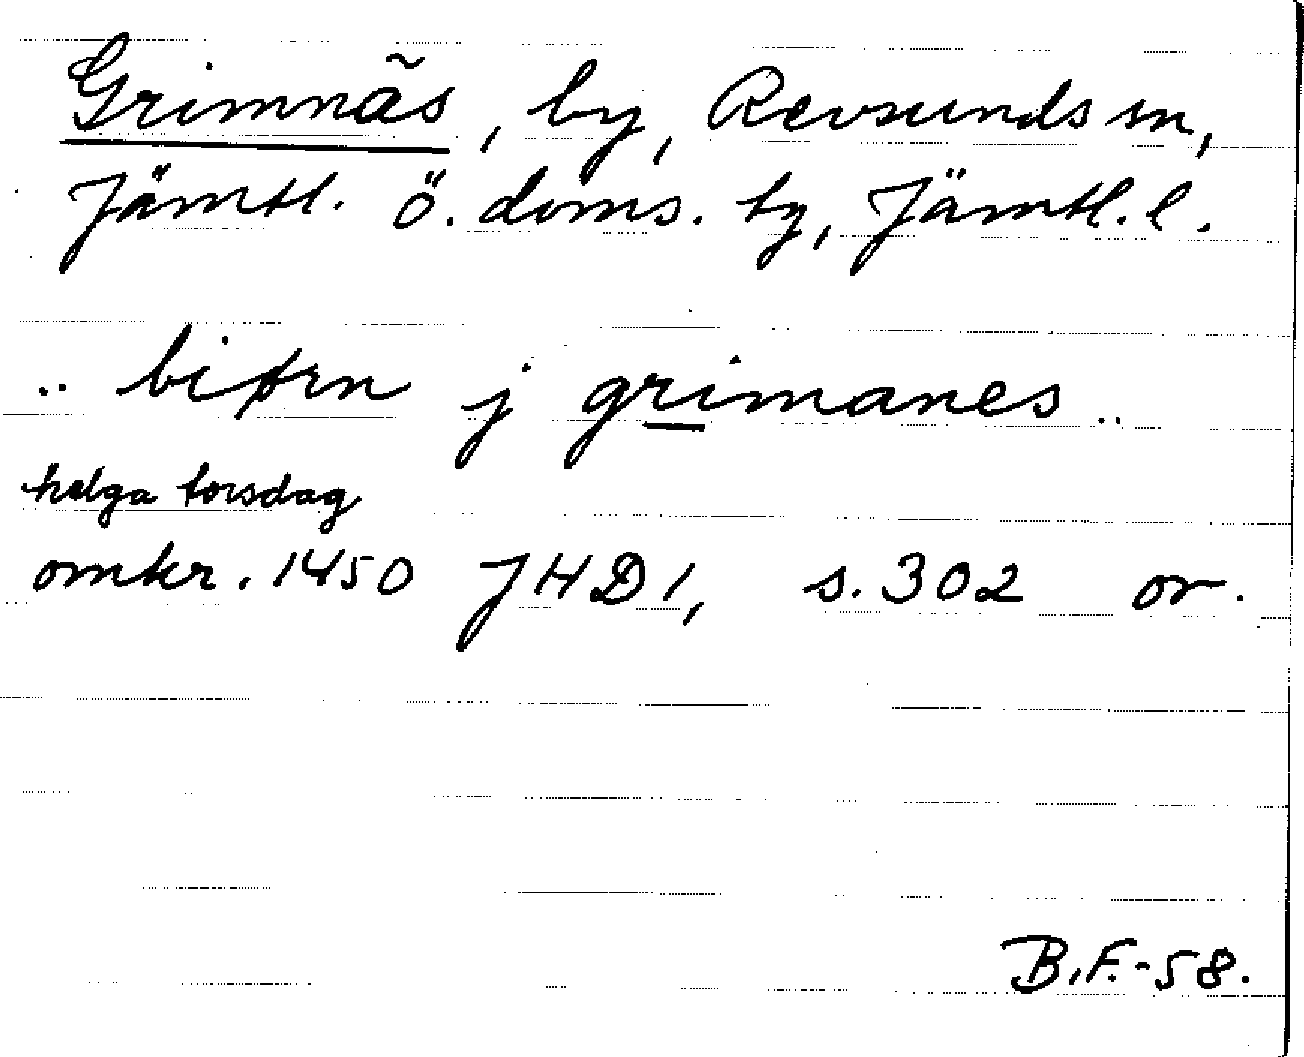 Grimnäs, by, Revsunds sn,
Jämtl. ö. doms. tg, Jämtl. l.
.. biørn j grimanes ..
helga torsdag
omkr. 1450 JHD 1, s. 302 or.
B.F.-58.